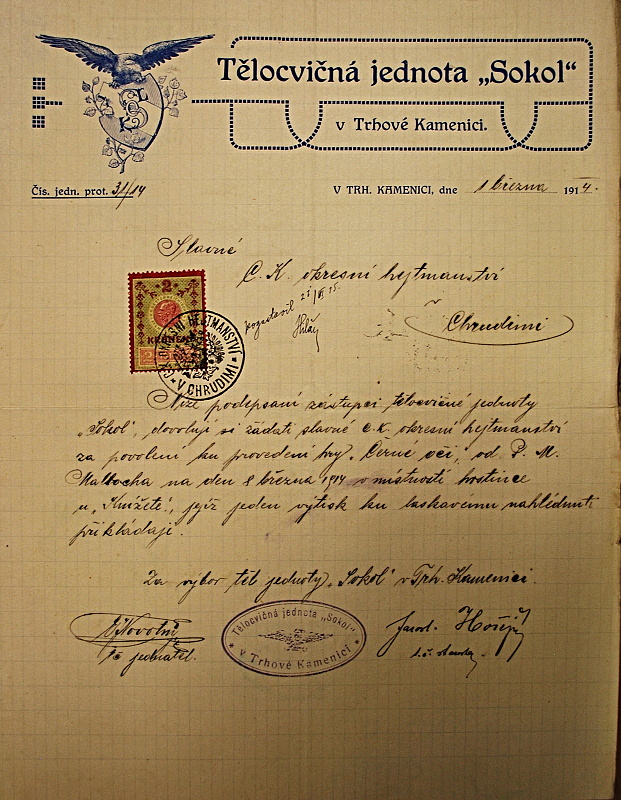 Tělocvičná jednota „Sokol“
v Trhové Kamenici.
Čís. jedn. prot. 31/14
V TRH. KAMENICI, dne 1 března 1914.
Slavné
C. K. okresní hejtmanství
v
Chrudimi
2
C.K. OKRESNÍ HEJTMANSTVÍ
V CHRUDIMI
Níže podepsaní zástupci tělocvičné jednoty
„Sokol“, dovolují si žádati slavné c. k. okresní hejtmanství
za povolení ku provedení hry „Černé oči“, od P. M.
Malbocha na den 8 března 1914 v místnosti hostince
u „Knížete“, jejíž jeden výtisk ku laskavému nahlédnutí
přikládají.
Za výbor těl jednoty „Sokol“ v Trh. Kamenici.
Novotný
jednatel.
Tělocvičná jednota „Sokol“
v Trhové Kamenici
Jarosl. Hořejš
t. č. starosta